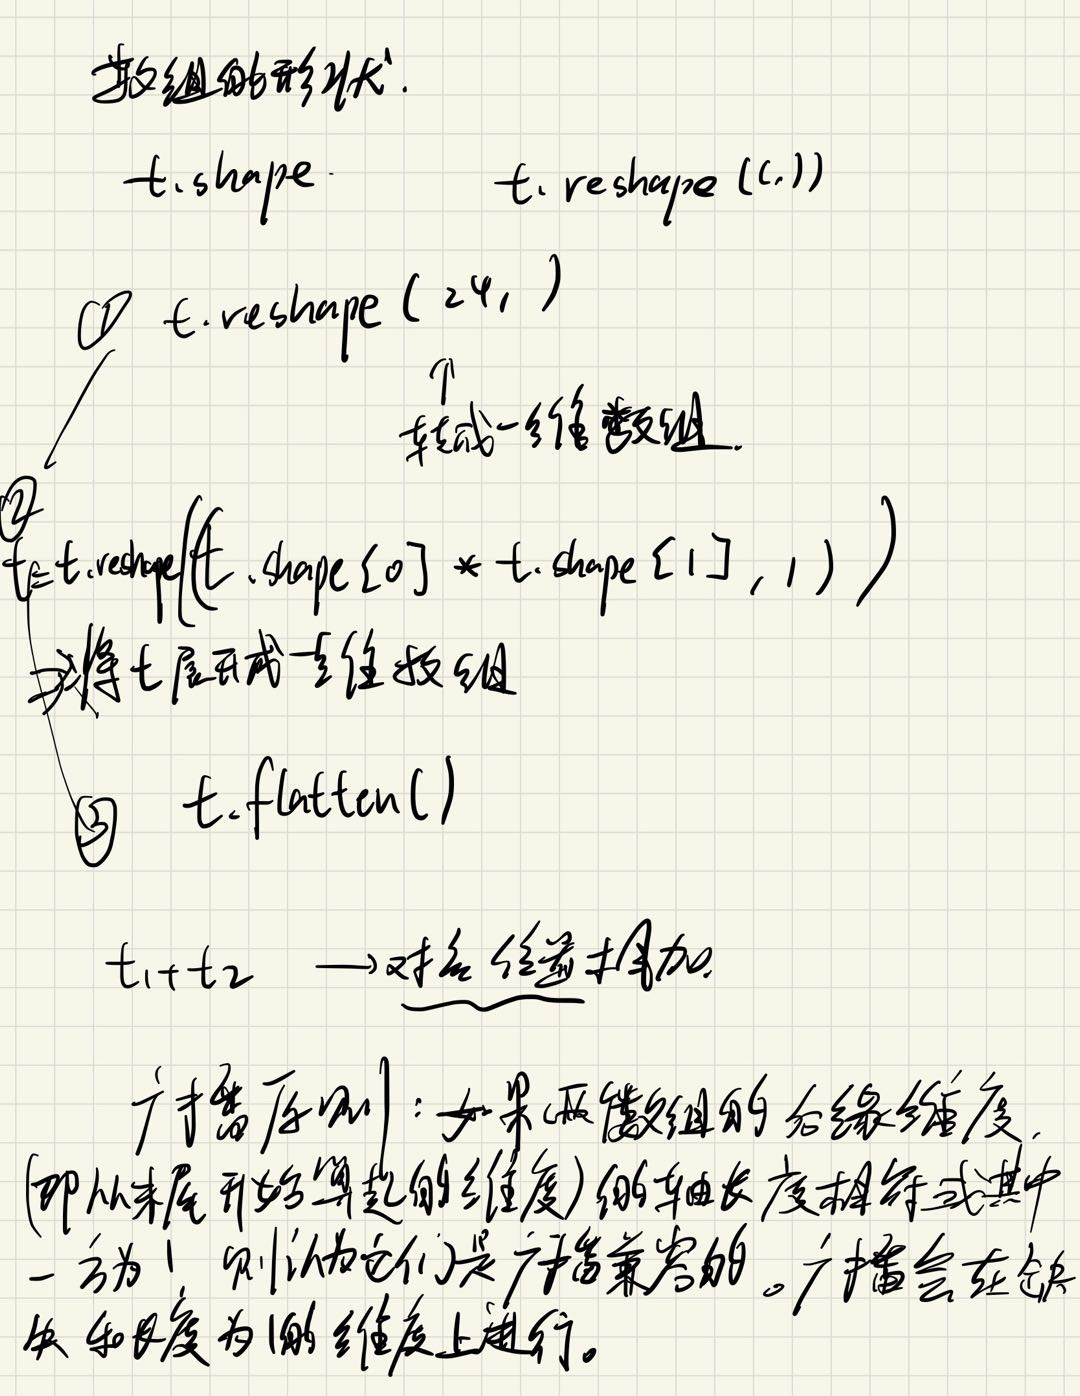 数组的形状.
t.shape t.reshape((,))
① t.reshape(24,)
↑
转成一维数组.
②
t=t.reshape((t.shape[0]*t.shape[1],1))
→将t展开成一维数组
③ t.flatten()
t1+t2 →对各位置相加.
广播原则:如果两数组的后缘维度.
(即从末尾开始算起的维度)的轴长度相符或其中
一方为1,则认为它们是广播兼容的。广播会在缺
失和长度为1的维度上进行。